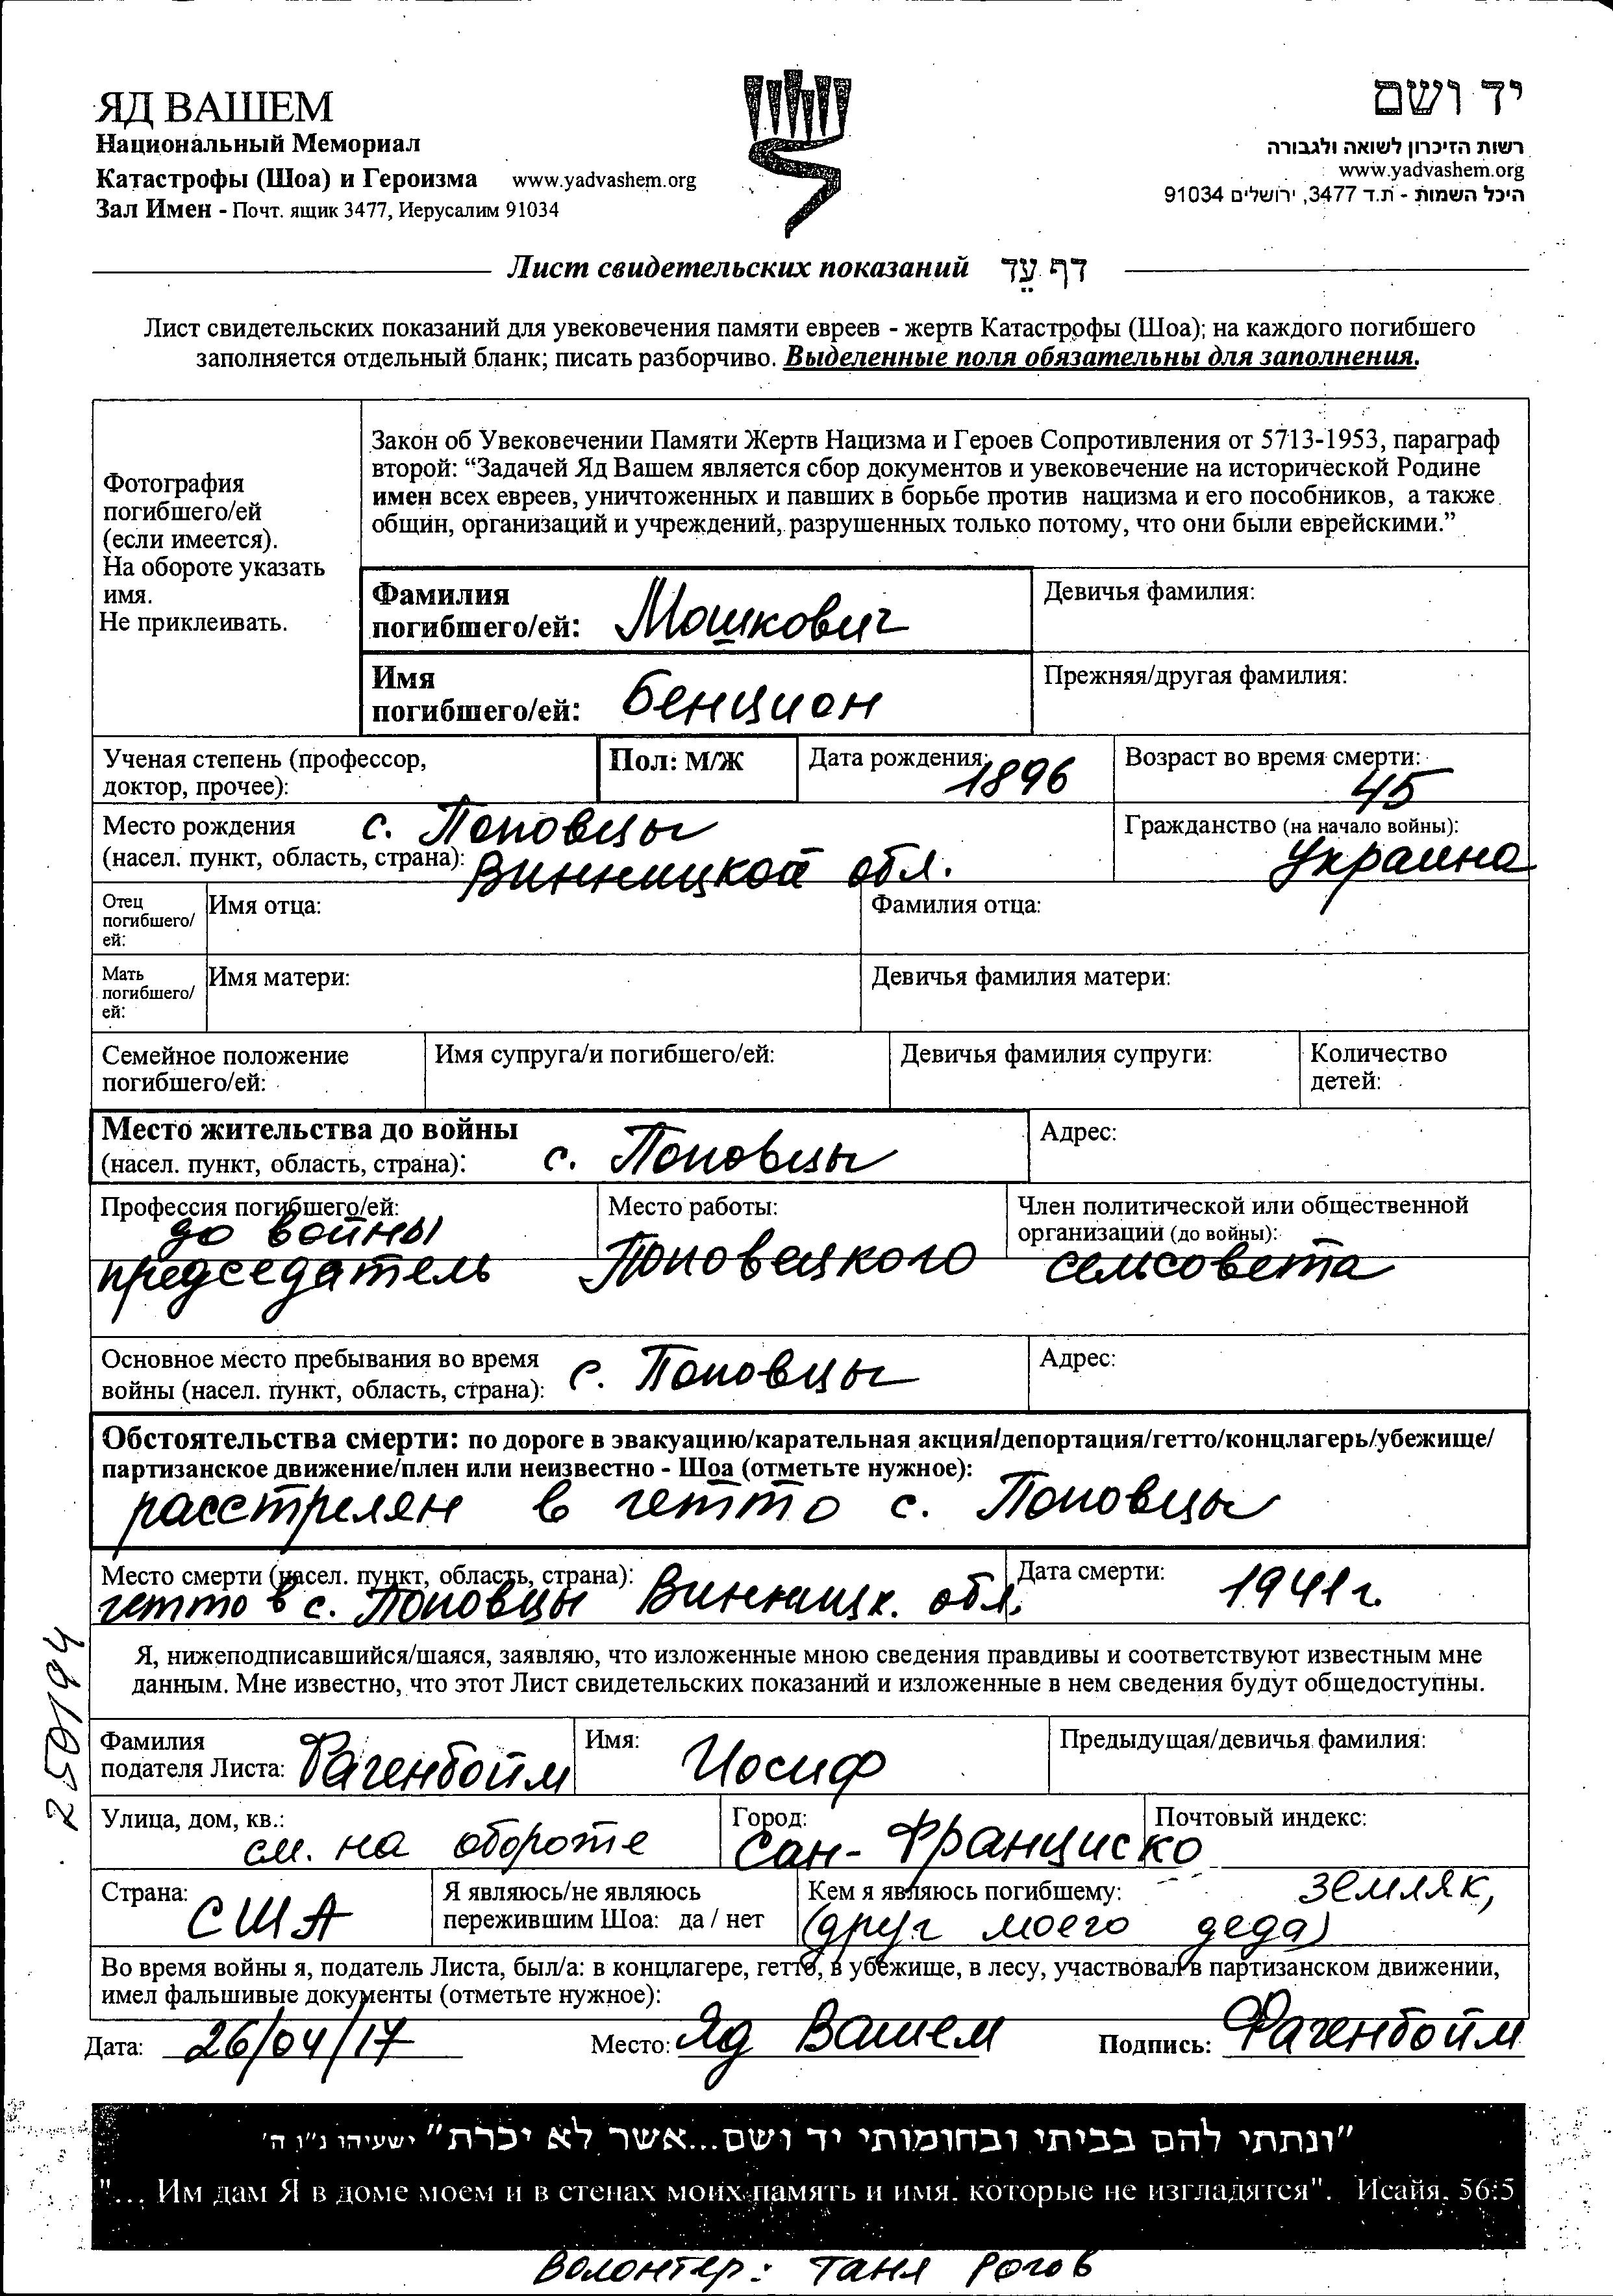 ЯД ВАШЕМ
Национальный Мемориал
Катастрофы (Шоа) и Героизма www.yadvashem.org
Зал Имен - Почт. ящик 3477, Иерусалим 91034
יד ושם
רשות הזיכרון לשואה ולגבורה
www.yadvashem.org
היכל השמות - ת.ד 3477, ירושלים 91034
Лист свидетельских показаний דף עֵד
Лист свидетельских показаний для увековечения памяти евреев - жертв Катастрофы (Шоа); на каждого погибшего
заполняется отдельный бланк; писать разборчиво. Выделенные поля обязательны для заполнения.
Фотография
погибшего/ей
(если имеется).
На обороте указать
имя.
Не приклеивать.
Закон об Увековечении Памяти Жертв Нацизма и Героев Сопротивления от 5713-1953, параграф
второй: “Задачей Яд Вашем является сбор документов и увековечение на исторической Родине
имен всех евреев, уничтоженных и павших в борьбе против нацизма и его пособников, а также
общин, организаций и учреждений, разрушенных только потому, что они были еврейскими.”
Фамилия
погибшего/ей: Мошкович
Девичья фамилия:
Имя
погибшего/ей: Бенцион
Прежняя/другая фамилия:
Ученая степень (профессор,
доктор, прочее):
Пол: М/Ж
Дата рождения: 1896
Возраст во время смерти: 45
Место рождения с. Поповцы
(насел. пункт, область, страна): Винницкой обл.
Гражданство (на начало войны):
Украина
Отец
погибшего/
ей:
Имя отца:
Фамилия отца:
Мать
погибшего/
ей:
Имя матери:
Девичья фамилия матери:
Семейное положение
погибшего/ей:
Имя супруга/и погибшего/ей:
Девичья фамилия супруги:
Количество
детей:
Место жительства до войны
(насел. пункт, область, страна): с. Поповцы
Адрес:
Профессия погибшего/ей:
Место работы:
Член политической или общественной
организации (до войны):
до войны
председатель Поповецкого сельсовета
Основное место пребывания во время
войны (насел. пункт, область, страна): с. Поповцы
Адрес:
Обстоятельства смерти: по дороге в эвакуацию/карательная акция/депортация/гетто/концлагерь/убежище/
партизанское движение/плен или неизвестно - Шоа (отметьте нужное):
расстрелян в гетто с. Поповцы
Место смерти (насел. пункт, область, страна):
гетто в с. Поповцы Винницк. обл.
Дата смерти: 1941г.
Я, нижеподписавшийся/шаяся, заявляю, что изложенные мною сведения правдивы и соответствуют известным мне
данным. Мне известно, что этот Лист свидетельских показаний и изложенные в нем сведения будут общедоступны.
250194
Фамилия
подателя Листа: Фагенбойм
Имя: Иосиф
Предыдущая/девичья фамилия:
Улица, дом, кв.:
см. на обороте
Город:
Сан-Франциско
Почтовый индекс:
Страна:
США
Я являюсь/не являюсь
пережившим Шоа: да / нет
Кем я являюсь погибшему: земляк,
(друг моего деда)
Во время войны я, податель Листа, был/а: в концлагере, гетто, в убежище, в лесу, участвовал в партизанском движении,
имел фальшивые документы (отметьте нужное):
Дата: 26/04/17 Место: Яд Вашем Подпись: Фагенбойм
"ונתתי להם בביתי ובחומותי יד ושם...אשר לא יכרת" ישעיהו נ"ו ה'
"... Им дам Я в доме моем и в стенах моих память и имя, которые не изгладятся". Исайя, 56:5
Волонтер: Таня Рогов